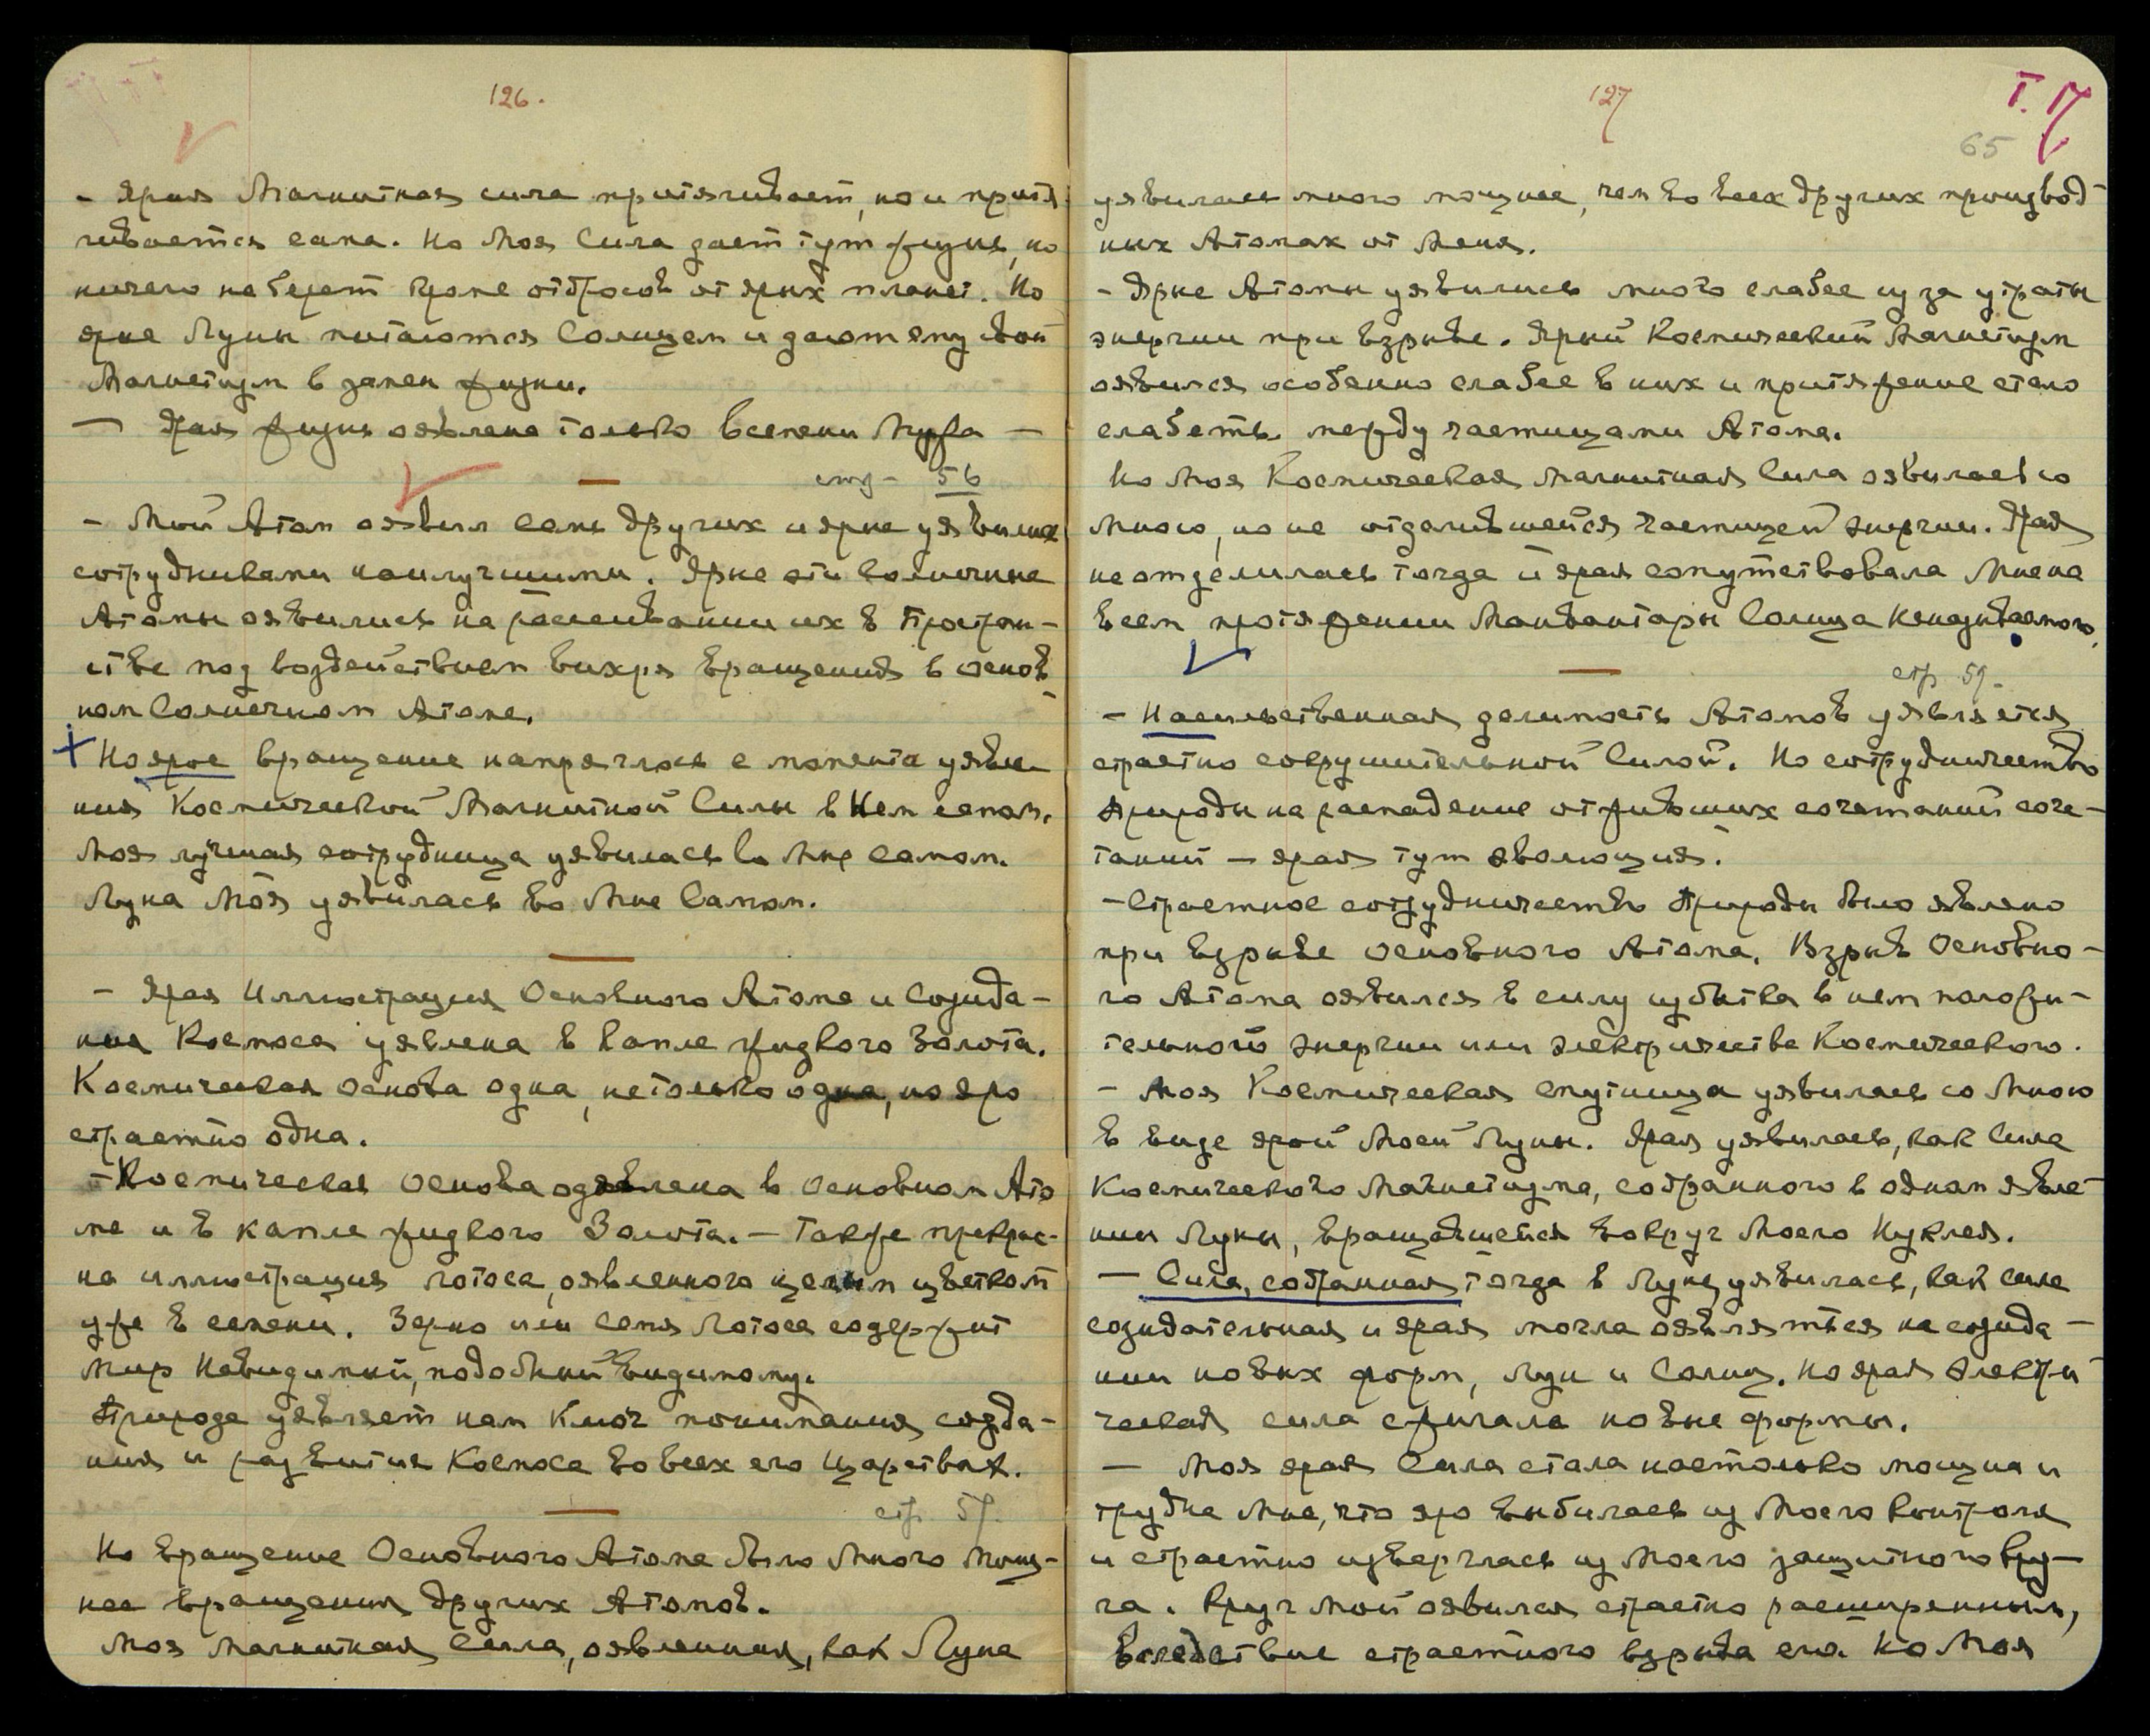 126.
- Ярая Магнитная сила притягивает, но и притя
гивается сама. Но Моя Сила дает тут жизнь, но
ничего не берет кроме отбросов от ярых планет. Но
ярые Луны питаются Солнцем и дают ему свой
Магнетизм в замен жизни.
— Ярая жизнь оявлена только в семени Мужа —
стр - 56
- Мой Атом оявил семь других и ярые уявились
сотрудниками наилучшими. Ярые эти солнечные
Атомы оявились на рассеивании их в Простран-
стве под воздействием вихря вращения в основ-
ном Солнечном Атоме.
+ Но ярое вращение напряглось с момента уявле-
ния Космической Магнитной Силы в Нем самом.
Моя лучшая сотрудница уявилась во Мне Самом.
Луна Моя уявилась во Мне Самом.
- Ярая Иллюстрация Основного Атома и Созида-
ния Космоса уявлена в капле жидкого Золота.
Космическая основа одна, не только одна, но яро
страстно одна.
- Космическая основа оявлена в Основном Ато
ме и в капле жидкого Золота. — Также прекрас-
на иллюстрация лотоса, оявленного целым цветком
уже в семени. Зерно или семя Лотоса содержит
мир Невидимый, подобный видимому.
Природа уявляет нам Ключ понимания созда-
ния и развития Космоса во всех его Царствах.
стр. 57.
Но вращение Основного Атома было много мощ-
нее вращения других Атомов.
Моя Магнитная Сила, оявленная, как Луна
127
Т. 17
65
уявилась много мощнее, чем во всех других производ-
ных Атомах от Меня.
- Ярые Атомы уявились много слабее из за утраты
энергии при взрыве. Ярый Космический Магнетизм
оявился особенно слабее в них и притяжение стало
слабеть между частицами Атома.
Но Моя Космическая Магнитная Сила оявилась со
Мною, но не отделившейся частицей энергии. Ярая
не отделилась тогда и ярая сопутствовала Мне на
всем протяжении Манвантары Солнца Каназываемого,
стр 59.
- Насильственная делимость Атомов уявляется
страстно сокрушительной Силой. Но сотрудничество
Природы на распадение отживших сочетаний соче-
таний — ярая тут эволюция.
- Страстное сотрудничество Природы было явлено
при взрыве основного Атома. Взрыв Основно-
го Атома оявился в силу избытка в нем положи-
тельного энергии или электричества Космического.
- Моя Космическая спутница уявилась со Мною
в виде ярой Моей Луны. Ярая уявилась, как Сила
Космического Магнетизма, собранного в одном явле-
нии Луны, вращавшейся вокруг Моего Нуклея.
— Сила, собранная тогда в Луне, уявилась, как сила
созидательная и ярая могла оявляться на созида-
нии новых форм, Лун и Солнц. Но ярая электри
ческая сила сжигала новые формы.
— Моя ярая Сила стала настолько мощна и
трудна Мне, что яро выбилась из Моего контроля
и страстно извергалась из Моего защитного кру-
га. Круг Мой оявился страстно расширенным,
вследствие страстного взрыва его. Но Моя